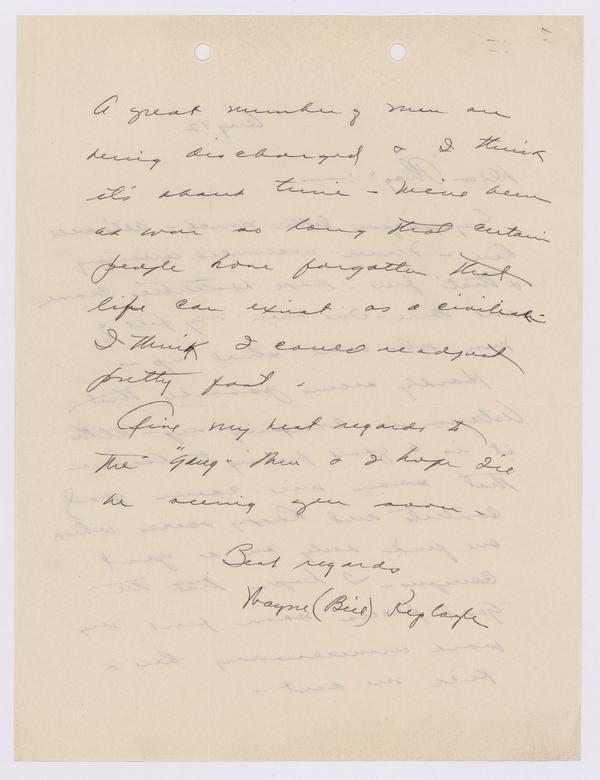 A great number of men are
being discharged & I think
it's about time - We've been
at war so long that certain
people have forgotten that
life can exist as a civilian
I think I could readjust
pretty fast.
Give my best regards to
the "Gang" then & I hope I'll
be seeing you soon.
Best regards
Wayne (Bill)